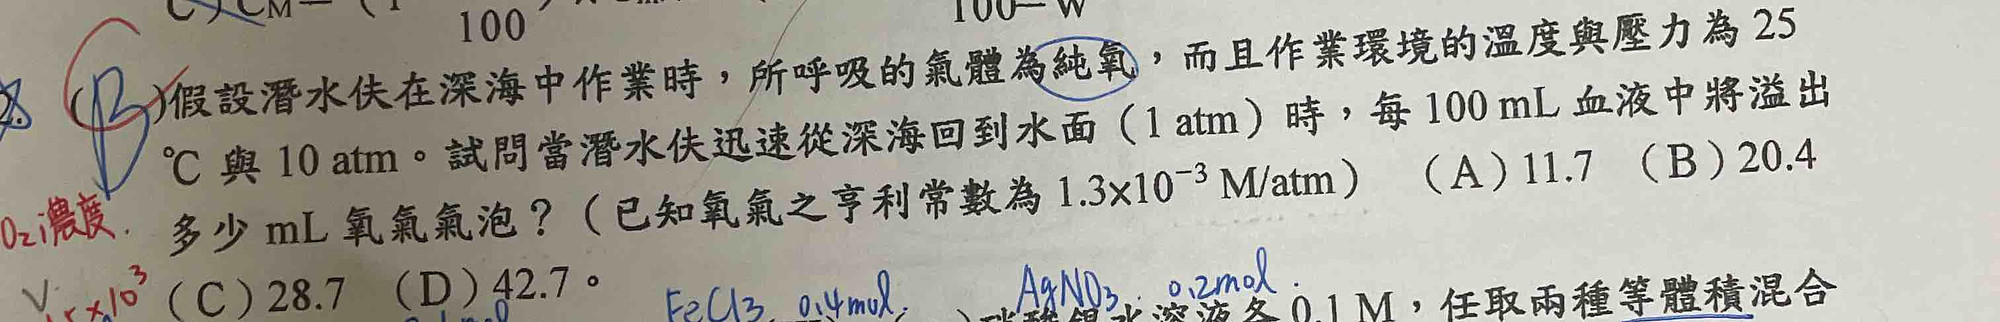 100
100-W
(B)假設潛水伕在深海中作業時，所呼吸的氣體為純氧，而且作業環境的溫度與壓力為 25
℃ 與 10 atm。試問當潛水伕迅速從深海回到水面（1 atm）時，每 100 mL 血液中將溢出
多少 mL 氧氣氣泡？（已知氧氣之亨利常數為 1.3×10⁻³ M/atm） （A）11.7 （B）20.4
O₂濃度.
（C）28.7 （D）42.7。
×10³
FeCl3 0.4mol.
AgNO3 0.2mol.
水溶液各 0.1 M，任取兩種等體積混合